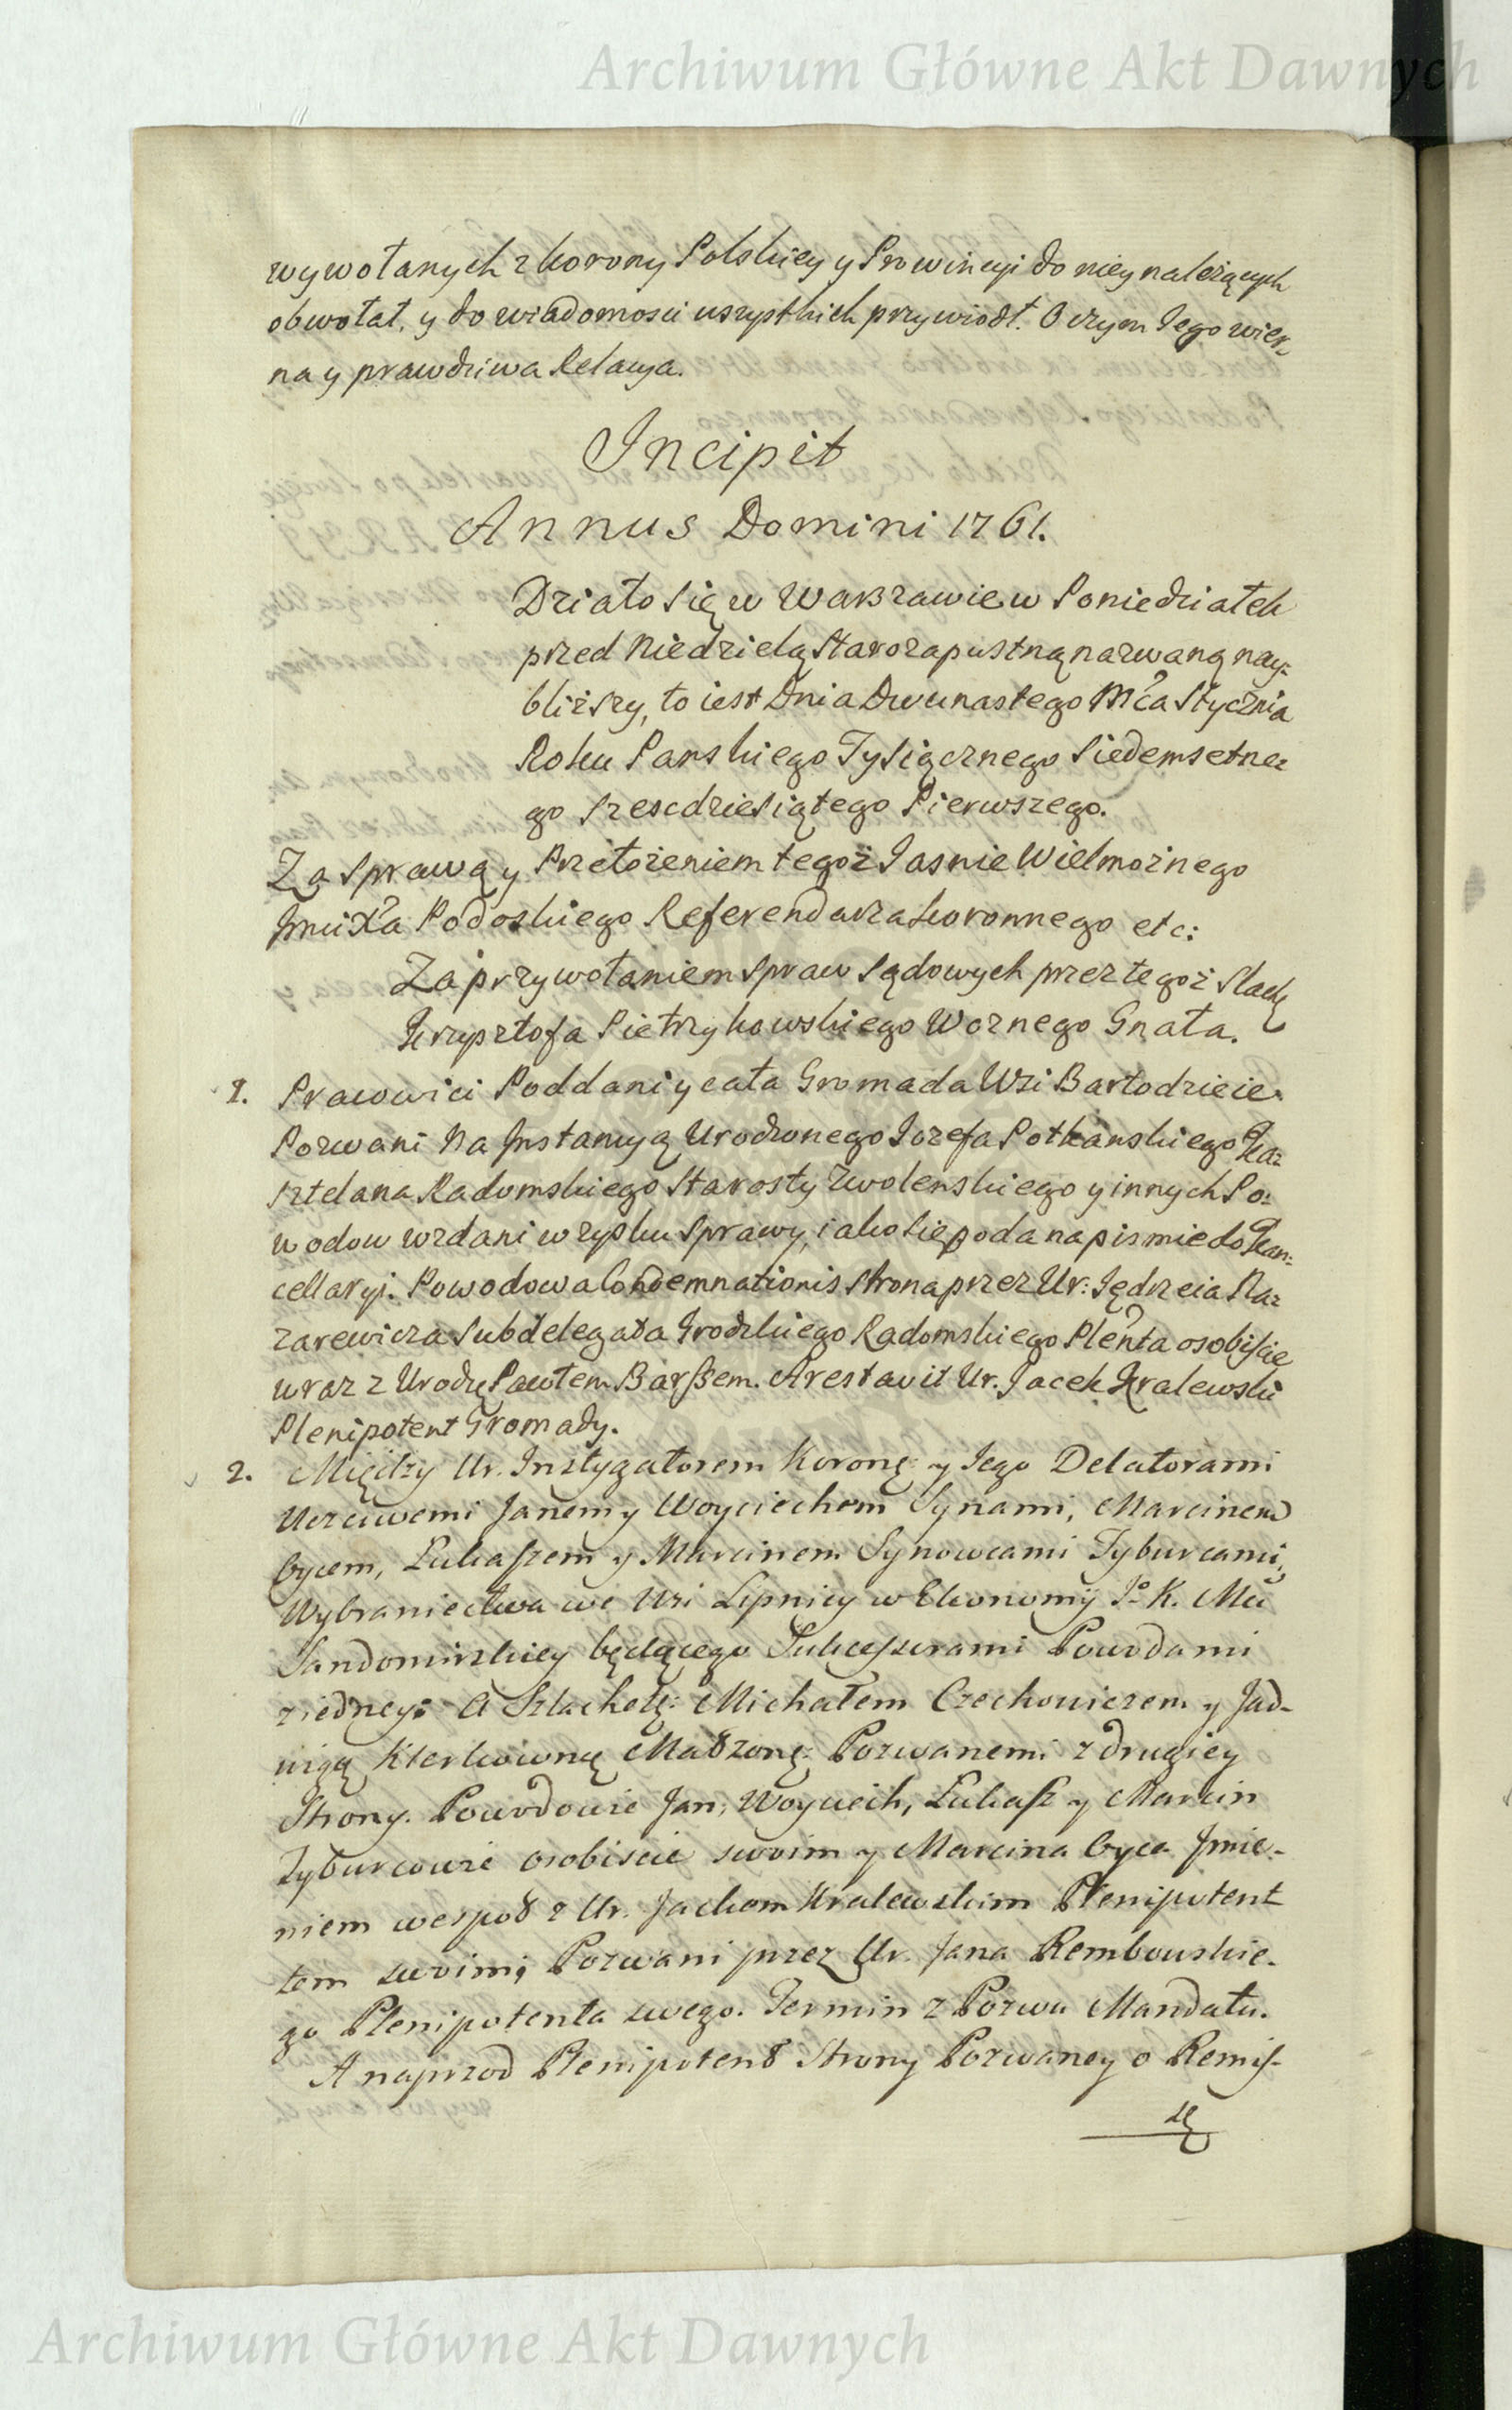 Archiwum Główne Akt Dawnych
wywołanych z korony Polskiey y Prowincyi do niey należących
obwołał, y do wiadomosci wszystkich przywiodł. O czym Jego wier:
na y prawdziwa Relacya.
Incipit
Annus Domini 1761.
Działo się w Warszawie w Poniedziałek
przed Niedzielą Starozapustną nazwaną nay:
bliższy, to iest Dnia Dwunastego Mca Stycznia
Roku Panskiego Tysiącznego Siedemsetne:
go Szescdziesiątego Pierwszego.
Za Sprawą y Przełożeniem tegoż Jasnie Wielmożnego
Jmci Xa Podoskiego Referendarza koronnego etc:
Za przywołaniem Spraw Sądowych przez tegoż Slachę
Krzysztofa Pietrzykowskiego Woznego Gnała.
1. Pracowici Poddani y cała Gromada Wsi Bartodzieie.
Pozwani Na Jnstancyą Urodzonego Jozefa Potkanskiego Ka:
sztelana Radomskiego Starosty Zwolenskiego y innych Po:
wodow wzdani w zysku Sprawy, iako się poda na pismie do Kan:
cellaryi. Powodowa Condemnationis strona przez Ur: Jędrzeia Na:
zarewicza Subdelegata Grodzkiego Radomskiego Plenta osobiscie
wraz z Urodz Pawłem Barssem. Arestavit Ur. Jacek Kralewski
Plenipotent Gromady.
2. Między Ur. Instygatorem Koronę: y Jego Delatorami
Uczciwemi Janem y Woyciechem Synami, Marcinem
Oycem, Lukaszem y Marcinem Synowcami Tyburcami,
Wybraniectwa we Wsi Lipnicy w Ekonomij Jo K. Mci
Sandomirskiey będącego Sukcessorami Powodami
z iedney: A Szlachetę: Michałem Czechowiczem y Jad-
wigą Małżonę: Pozwanemi z drugiey
Strony. Powodowie Jan, Woyciech, Lukasz y Marcin
Tyburcowie osobiscie swoim y Marcina Oyca Jmie-
niem wespoł z Ur. Jackem Kralewskim Plenipotent
tem swoim; Pozwani przez Ur. Jana Rembowskie-
go Plenipotenta swego. Termin z Pozwu Mandatu.
A naprzod Plenipotent Strony Pozwaney o Remis-
sę
Archiwum Główne Akt Dawnych